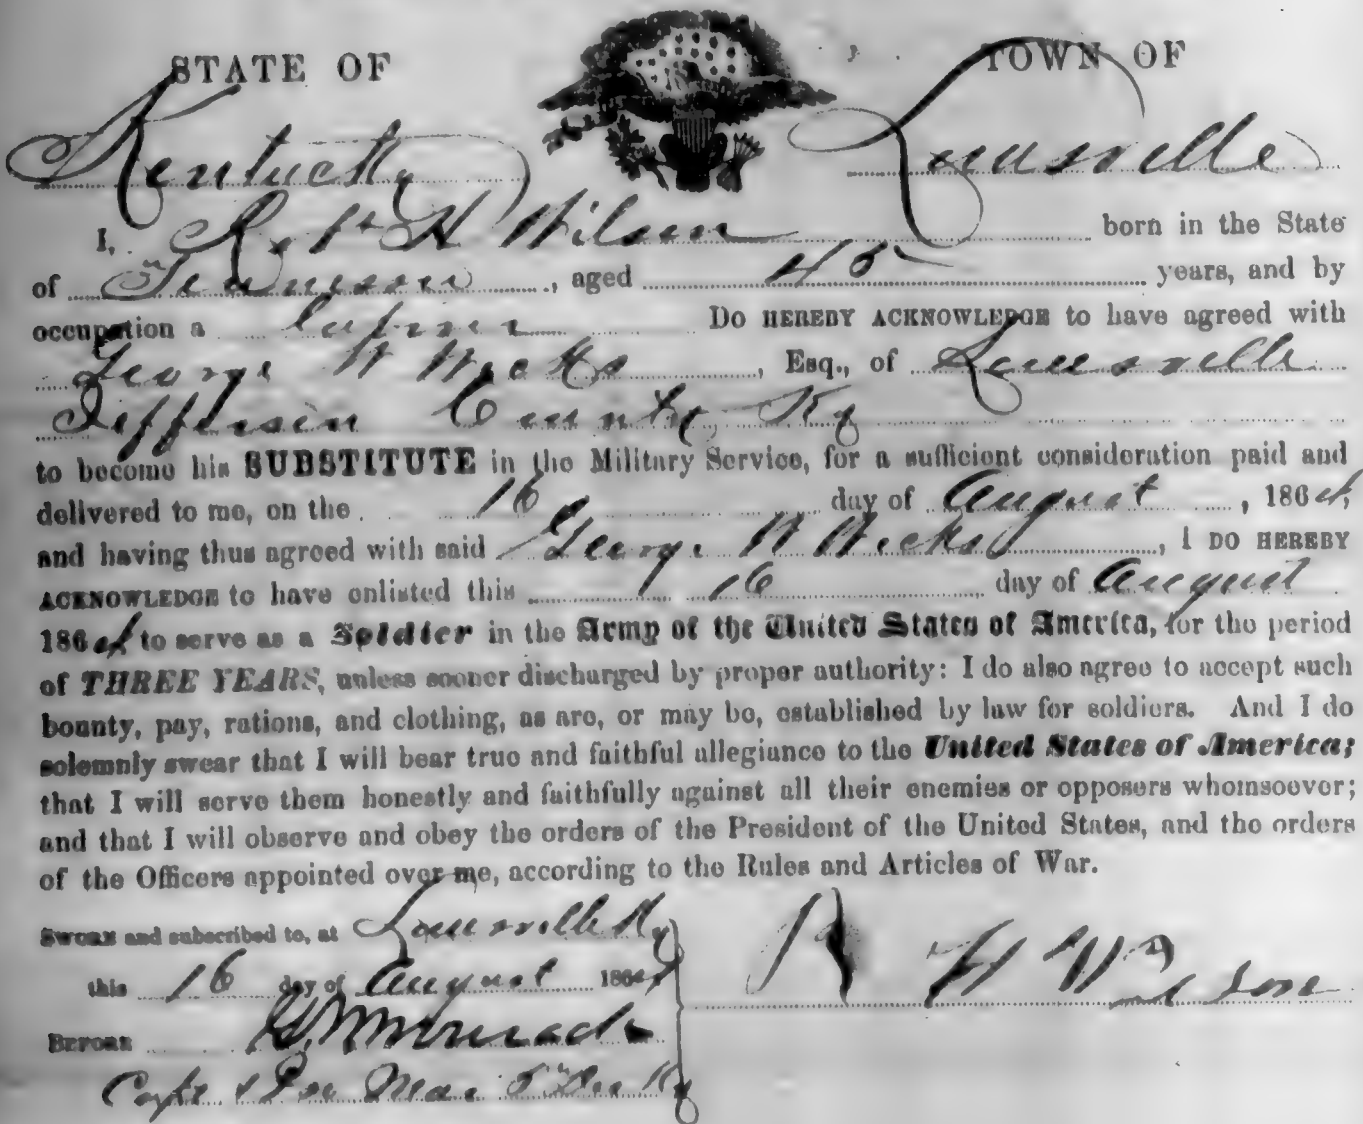 STATE OF TOWN OF
Kentucky Louisville
I, Robt H Wilson born in the State
of Tennessee, aged 45 years, and by
occupation a DO HEREBY ACKNOWLEDGE to have agreed with
George W Weeks, Esq., of Louisville
Jefferson County Ky
to become his SUBSTITUTE in the Military Service, for a sufficient consideration paid and
delivered to me, on the 16 day of August, 1864,
and having thus agreed with said George W Weeks, I DO HEREBY
ACKNOWLEDGE to have enlisted this 16 day of August
1864 to serve as a Soldier in the Army of the United States of America, for the period
of THREE YEARS, unless sooner discharged by proper authority: I do also agree to accept such
bounty, pay, rations, and clothing, as are, or may be, established by law for soldiers. And I do
solemnly swear that I will bear true and faithful allegiance to the United States of America;
that I will serve them honestly and faithfully against all their enemies or opposers whomsoever;
and that I will observe and obey the orders of the President of the United States, and the orders
of the Officers appointed over me, according to the Rules and Articles of War.
Sworn and subscribed to, at Louisville Ky
this 16 day of August 1864
R H Wilson
BEFORE
Capt & Pro Mar 5th Dis Ky